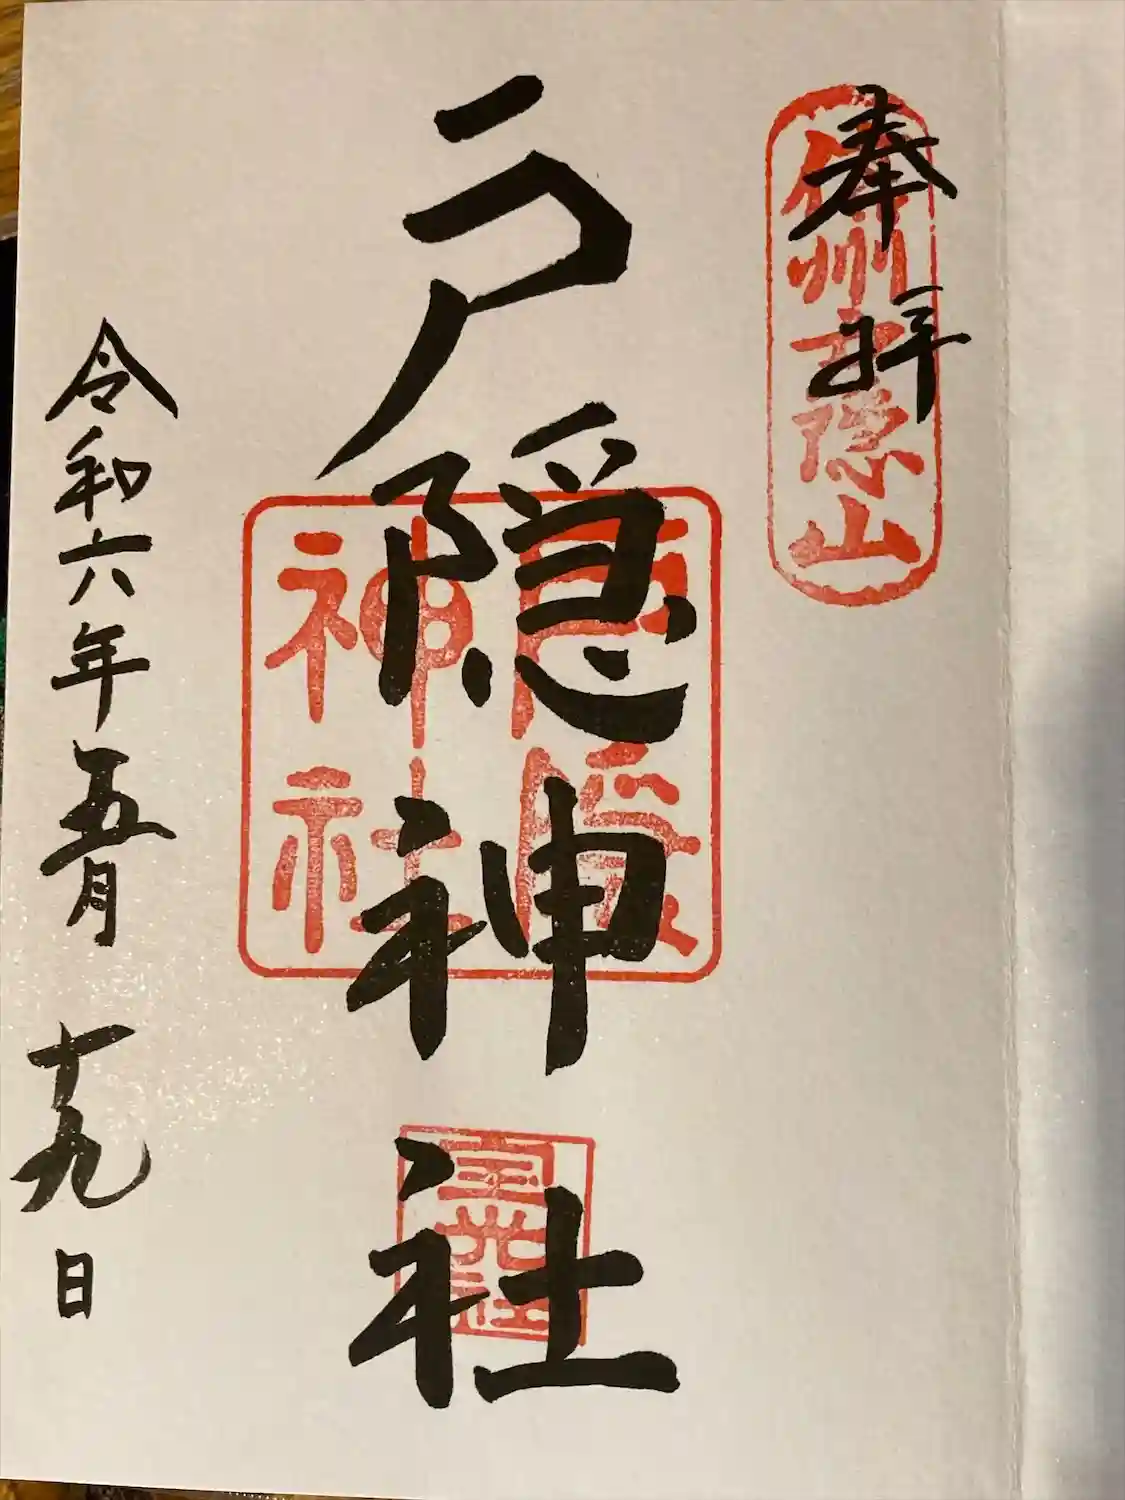 奉拝
信州戸隠山
戸隠神社
戸隠
神社
令和六年五月十九日